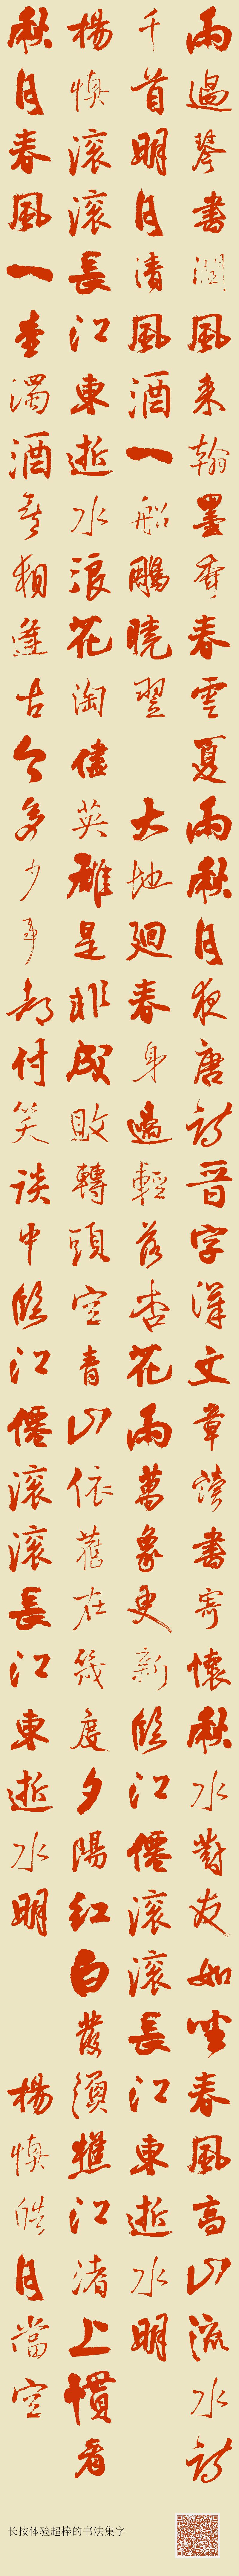 雨過琴書潤風来翰墨香春雲夏雨秋月夜唐詩晉字漢文章讀書寄懷秋水對友如坐春風高山流水詩
千首明月清風酒一船鵬曉翌 大地廻春身過輕落杏花雨萬象更新臨江僊滾滾長江東逝水明
楊慎滾滾長江東逝水浪花淘儘英雄是非成敗轉頭空青山依舊在幾度夕陽紅白發須樵江渚上慣看
秋月春風一壺濁酒喜相逢古今多少事都付笑談中臨江僊滾滾長江東逝水明 楊慎皓月當空
长按体验超棒的书法集字